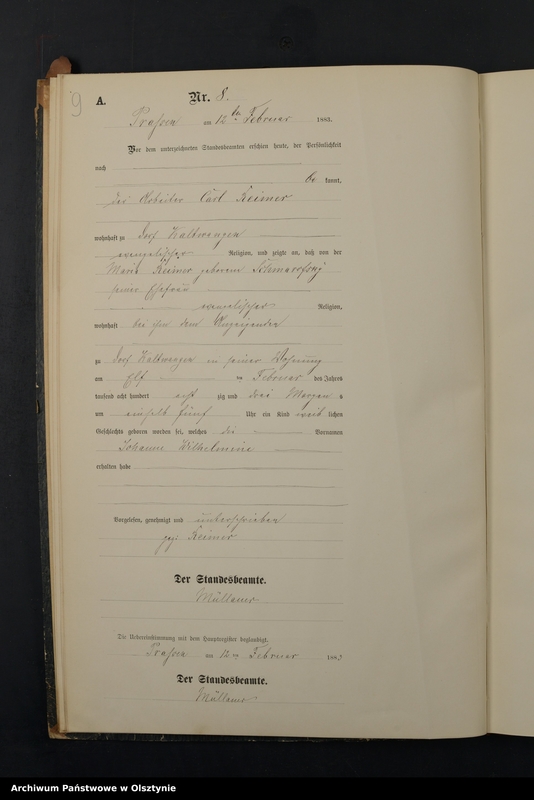 9
A. Nr. 8.
Prassen am 12ten Februar 1883.
Vor dem unterzeichneten Standesbeamten erschien heute, der Persönlichkeit
nach
be kannt,
der Arbeiter Carl Reimer
wohnhaft zu Dorf Kaltwangen
evangelischer Religion, und zeigte an, daß von der
Marie Reimer geborene
seine Ehefrau
evangelischer Religion,
wohnhaft bei ihm dem Anzeigenden
zu Dorf Kaltwangen in seiner Wohnung
am Elf ten Februar des Jahres
tausend acht hundert acht zig und drei Morgens
um einhalb fünf Uhr ein Kind weib lichen
Geschlechts geboren worden sei, welches die Vornamen
Johanne Wilhelmine
erhalten habe
Vorgelesen, genehmigt und unterschrieben
gez. Reimer
Der Standesbeamte.
Müllauer
Die Uebereinstimmung mit dem Hauptregister beglaubigt.
Prassen am 12ten Februar 1883
Der Standesbeamte.
Müllauer
Archiwum Państwowe w Olsztynie